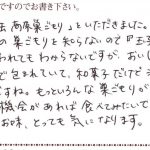 ですのでお書き下さい。
高原巣ごもり」といただきました。
の巣ごもりを知らないので『玉子
われてもわからないですが、おいし
で包まれていて、和菓子だけど
すね。もっといろんな巣ごもりが
機会があれば食べてみたいで
お味、とっても気になります。